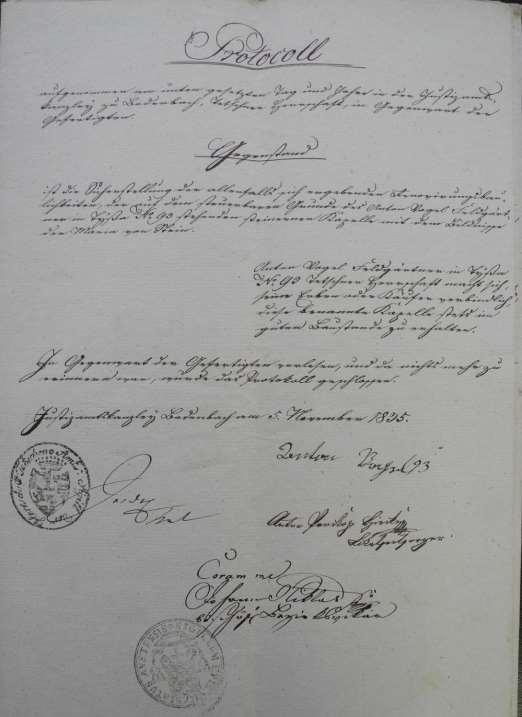 Protocoll
aufgenommen am unten gesetzten Tag und Jahr in der Justizamts
kanzley zu Bodenbach, Tetschner Herrschaft, in Gegenwart der
Gefertigten.
Gegenstand
ist die Sicherstellung der allenfalls sich ergebenden Renovirungsbau
lichkeiten, der auf dem steuerbaren Grunde des Anton Vogel Feldgärt
ner in Tyßa No 93 stehenden steinernen Kapelle mit dem Bildnisse
der Maria von Stein.
Anton Vogel Feldgärtner in Tyßa
No 93 Tetschner Herrschaft macht sich,
seine Erben oder Käufer verbindlich,
diese benannte Kapelle stets in
guten Baustande zu erhalten.
In Gegenwart der Gefertigten verlesen, und da nichts mehr zu
erinnern war, wurde das Protokoll geschlossen.
Justizamtskanzley Bodenbach am 5. November 1835.
Anton Vogel 93
Anton
Coram me
Johann